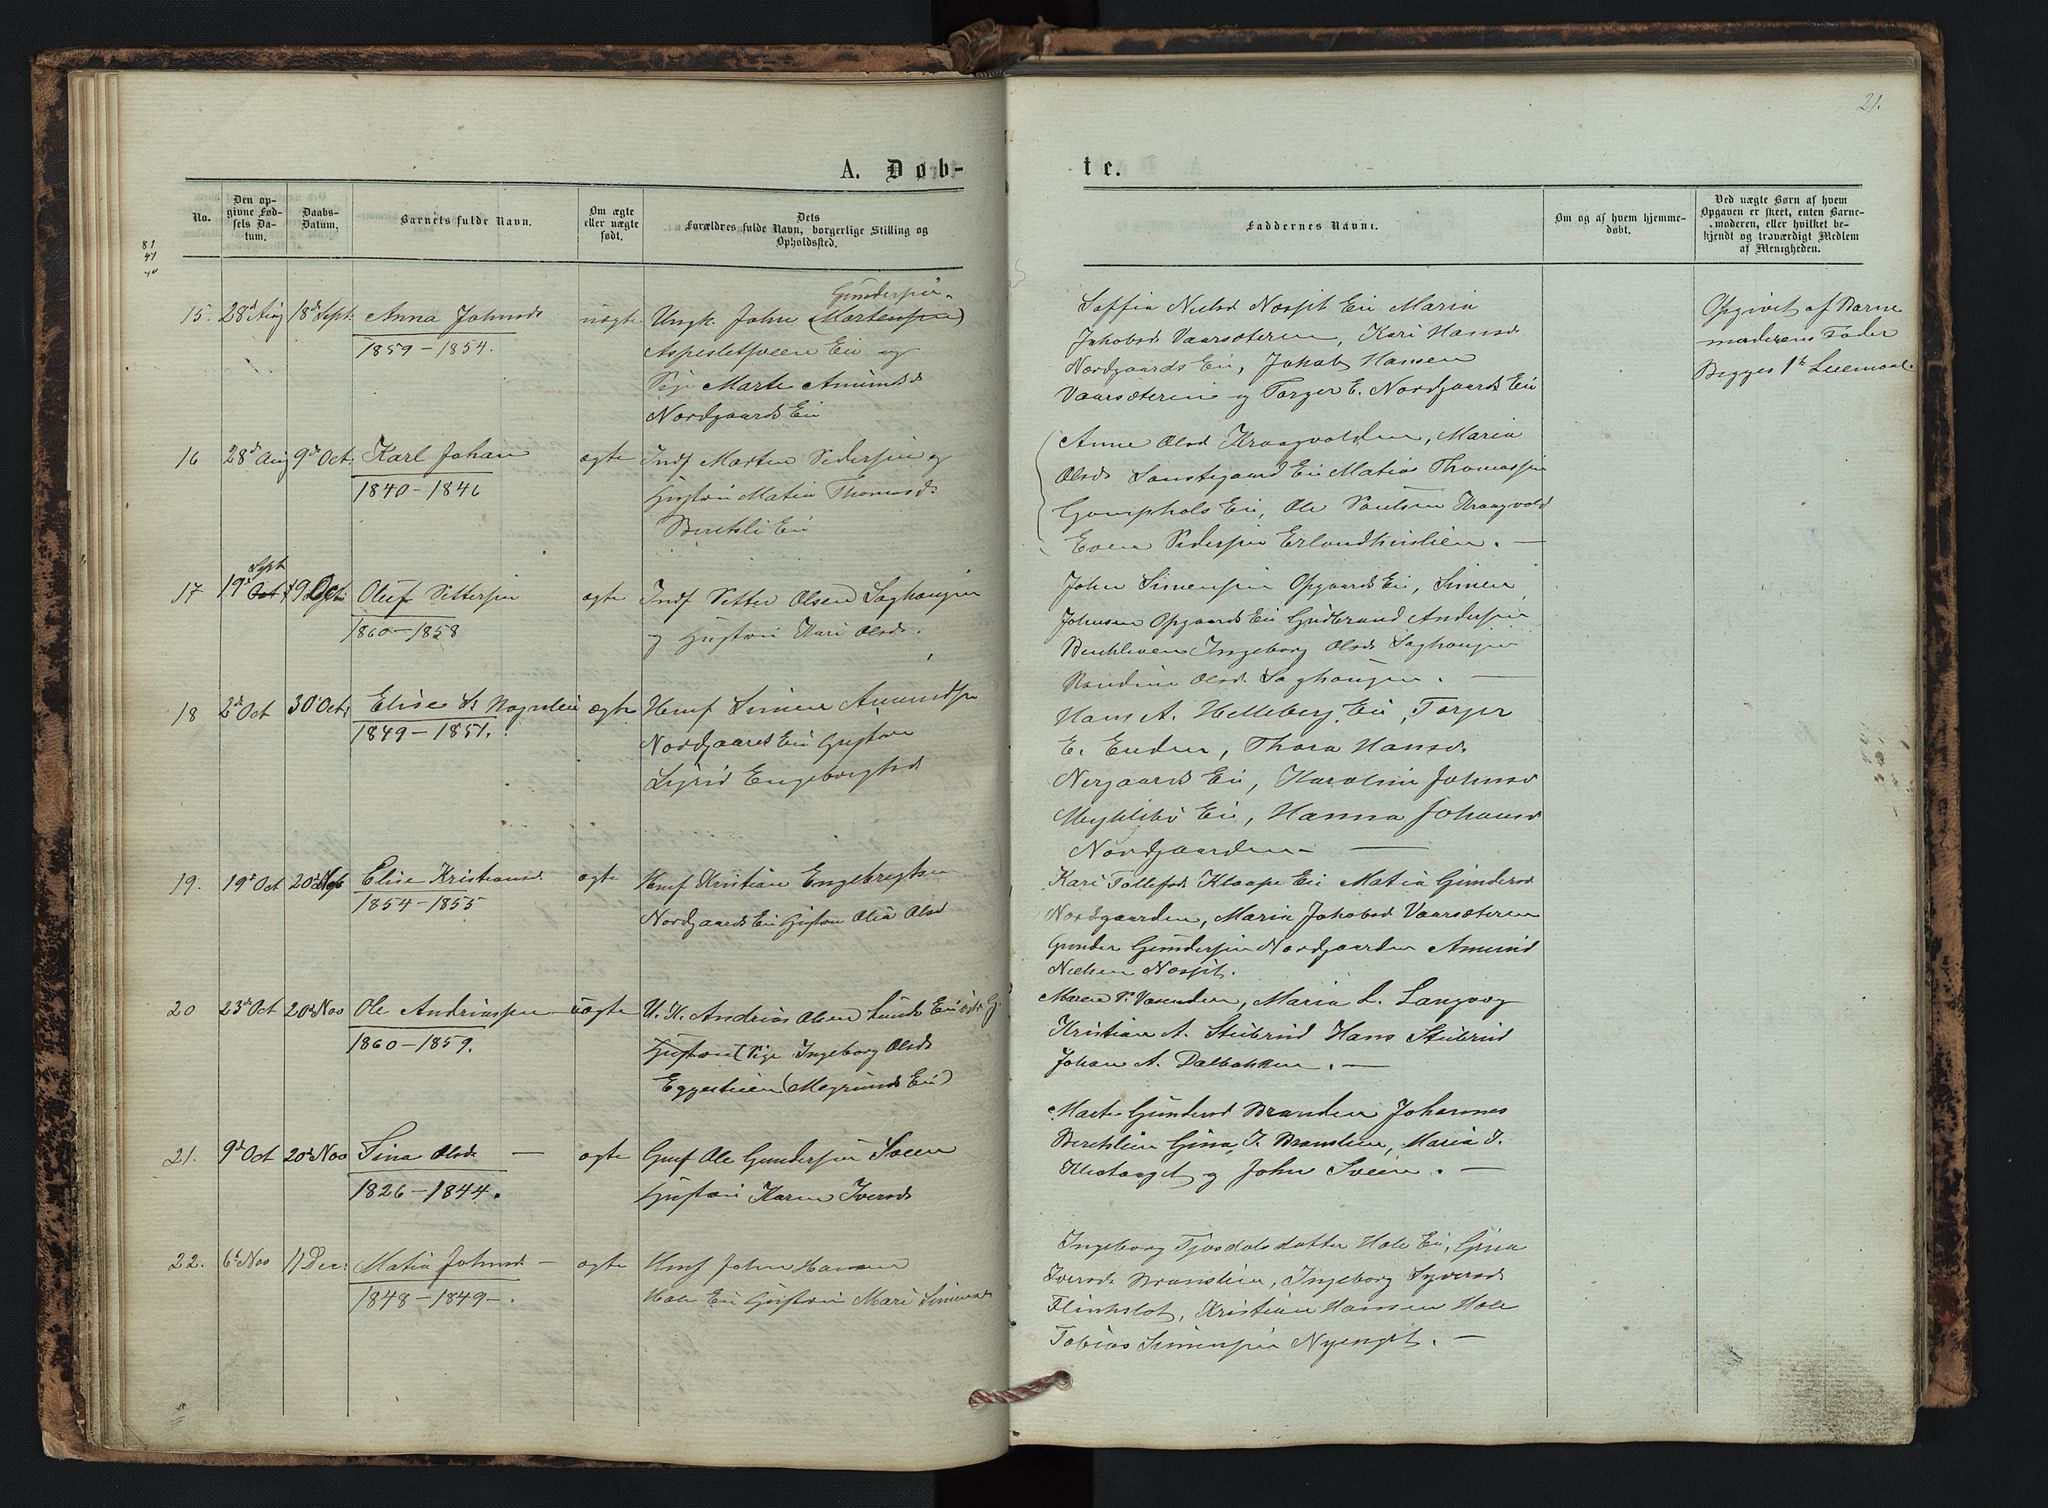 21.
A. Døb-
te.
No.
Den op-
givne Fød-
sels Da-
tum.
Daabs-
Datum.
Barnets fulde Navn.
Om ægte
eller uægte
født.
Dets
Forældres fulde Navn, borgerlige Stilling og
Opholdssted.
Faddernes Navne.
Om og af hvem hjemme-
døbt.
Ved uægte Børn af hvem
Opgaven er skeet, enten Barne-
moderen, eller hvilket be-
kjendt og troværdigt Medlem
af Menigheden.
81
41
40
15. 28de Aug 18de Sept. Anna Johnsd uægte Ungk. John (Martensen) Gundersen
1859-1854.
Ei og
Pige Marte Amunds
Nordgaards Ei
Soffia Nielsd Næsset Ei Maria
Jakobsd Vaarsæteren, Kari Hansd
Nordgaards Ei, Jakob Hansen
Vaarsæteren og Torger E. Nordgaards Ei
Opgivet af Barne
moderens Fader
Begges 1te Leiermaal.
16 28de Aug 9de Oct. Karl Johan ægte Indf Morten Pedersen og
1840-1846
Hustru Matia Thomasd.
Ei
Anne Olsd Kraagvolden, Maria
Olsd Ei Matias Thomassen
Ei, Ole Poulsen Kraagvold
Even Pedersen Erlandhuslien. —
17 19de Sept Oct 9de Oct. Oluf Pettersen ægte Indf Petter Olsen Saghougen
1860-1858
og Hustru Kari Olsd.
John Simensen Opgaards Ei, Simen
Johnsen Opgaards Ei Gudbrand Andersen
Ingeborg Olsd Saghougen
Randine Olsd. Saghougen. —
18 2de Oct 30te Oct. Elise S. ægte Simen Amundsen
1849-1851.
Nordgaards Ei Hustru
Sigrid Engebregtsd
Hans A. Helleberg Ei, Torger
E. Enden, Thora Hansd.
Nergaards Ei, Karoline Johnsd
Myklebø Ei, Hanna Johansd
Nordgaarden —
19. 19de Oct 20de Elise Kristiansd ægte Kristian Engebregtsen
1854-1855
Nordgaards Ei Hustru Olia Olsd
Kari Tollefsd Klaape Ei Matia Gundersd
Nordgaarden, Maria Jakobsd Vaarsæteren
Gunder Gundersen Nordgaarden Amund
Nielsen Næsset.
20 23de Oct 20de Nov Ole Andriassen uægte U. K. Andrias Olsen Lunds Ei
1860-1859.
Hustru (Pige Ingeborg Olsd
(Megrunds Ei)
Maren P. Vasenden, Maria L. Langvog
Kristian A. Stubrud Hans Stubrud
Johan A. Dalbakken. —
21. 9de Oct 20de Nov Sina Olsd — ægte Gmf Ole Gundersen Sveen
1826-1844.
Hustru Karen Iversd
Marte Gundersd Branden Johannes
Gina I. Branslien, Maria J.
og John Sveen. —
22. 6te Nov 11 Dec. Matia Johnsd — ægte John Hansen
1848-1849-.
Hole Ei Hustru Mari Simensd
Ingeborg Tjosdolsdatter Hole Ei, Gina
Iversd Branslien, Ingeborg Syversd
Flinkslot, Kristian Hansen Hole
Tobias Simensen Nyenget. —